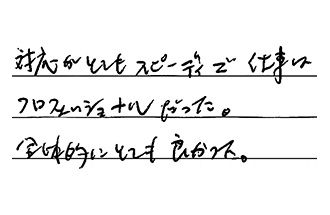 対応がとてもスピーディで仕事は
プロフェッショナルだった。
全体的にとても良かった。